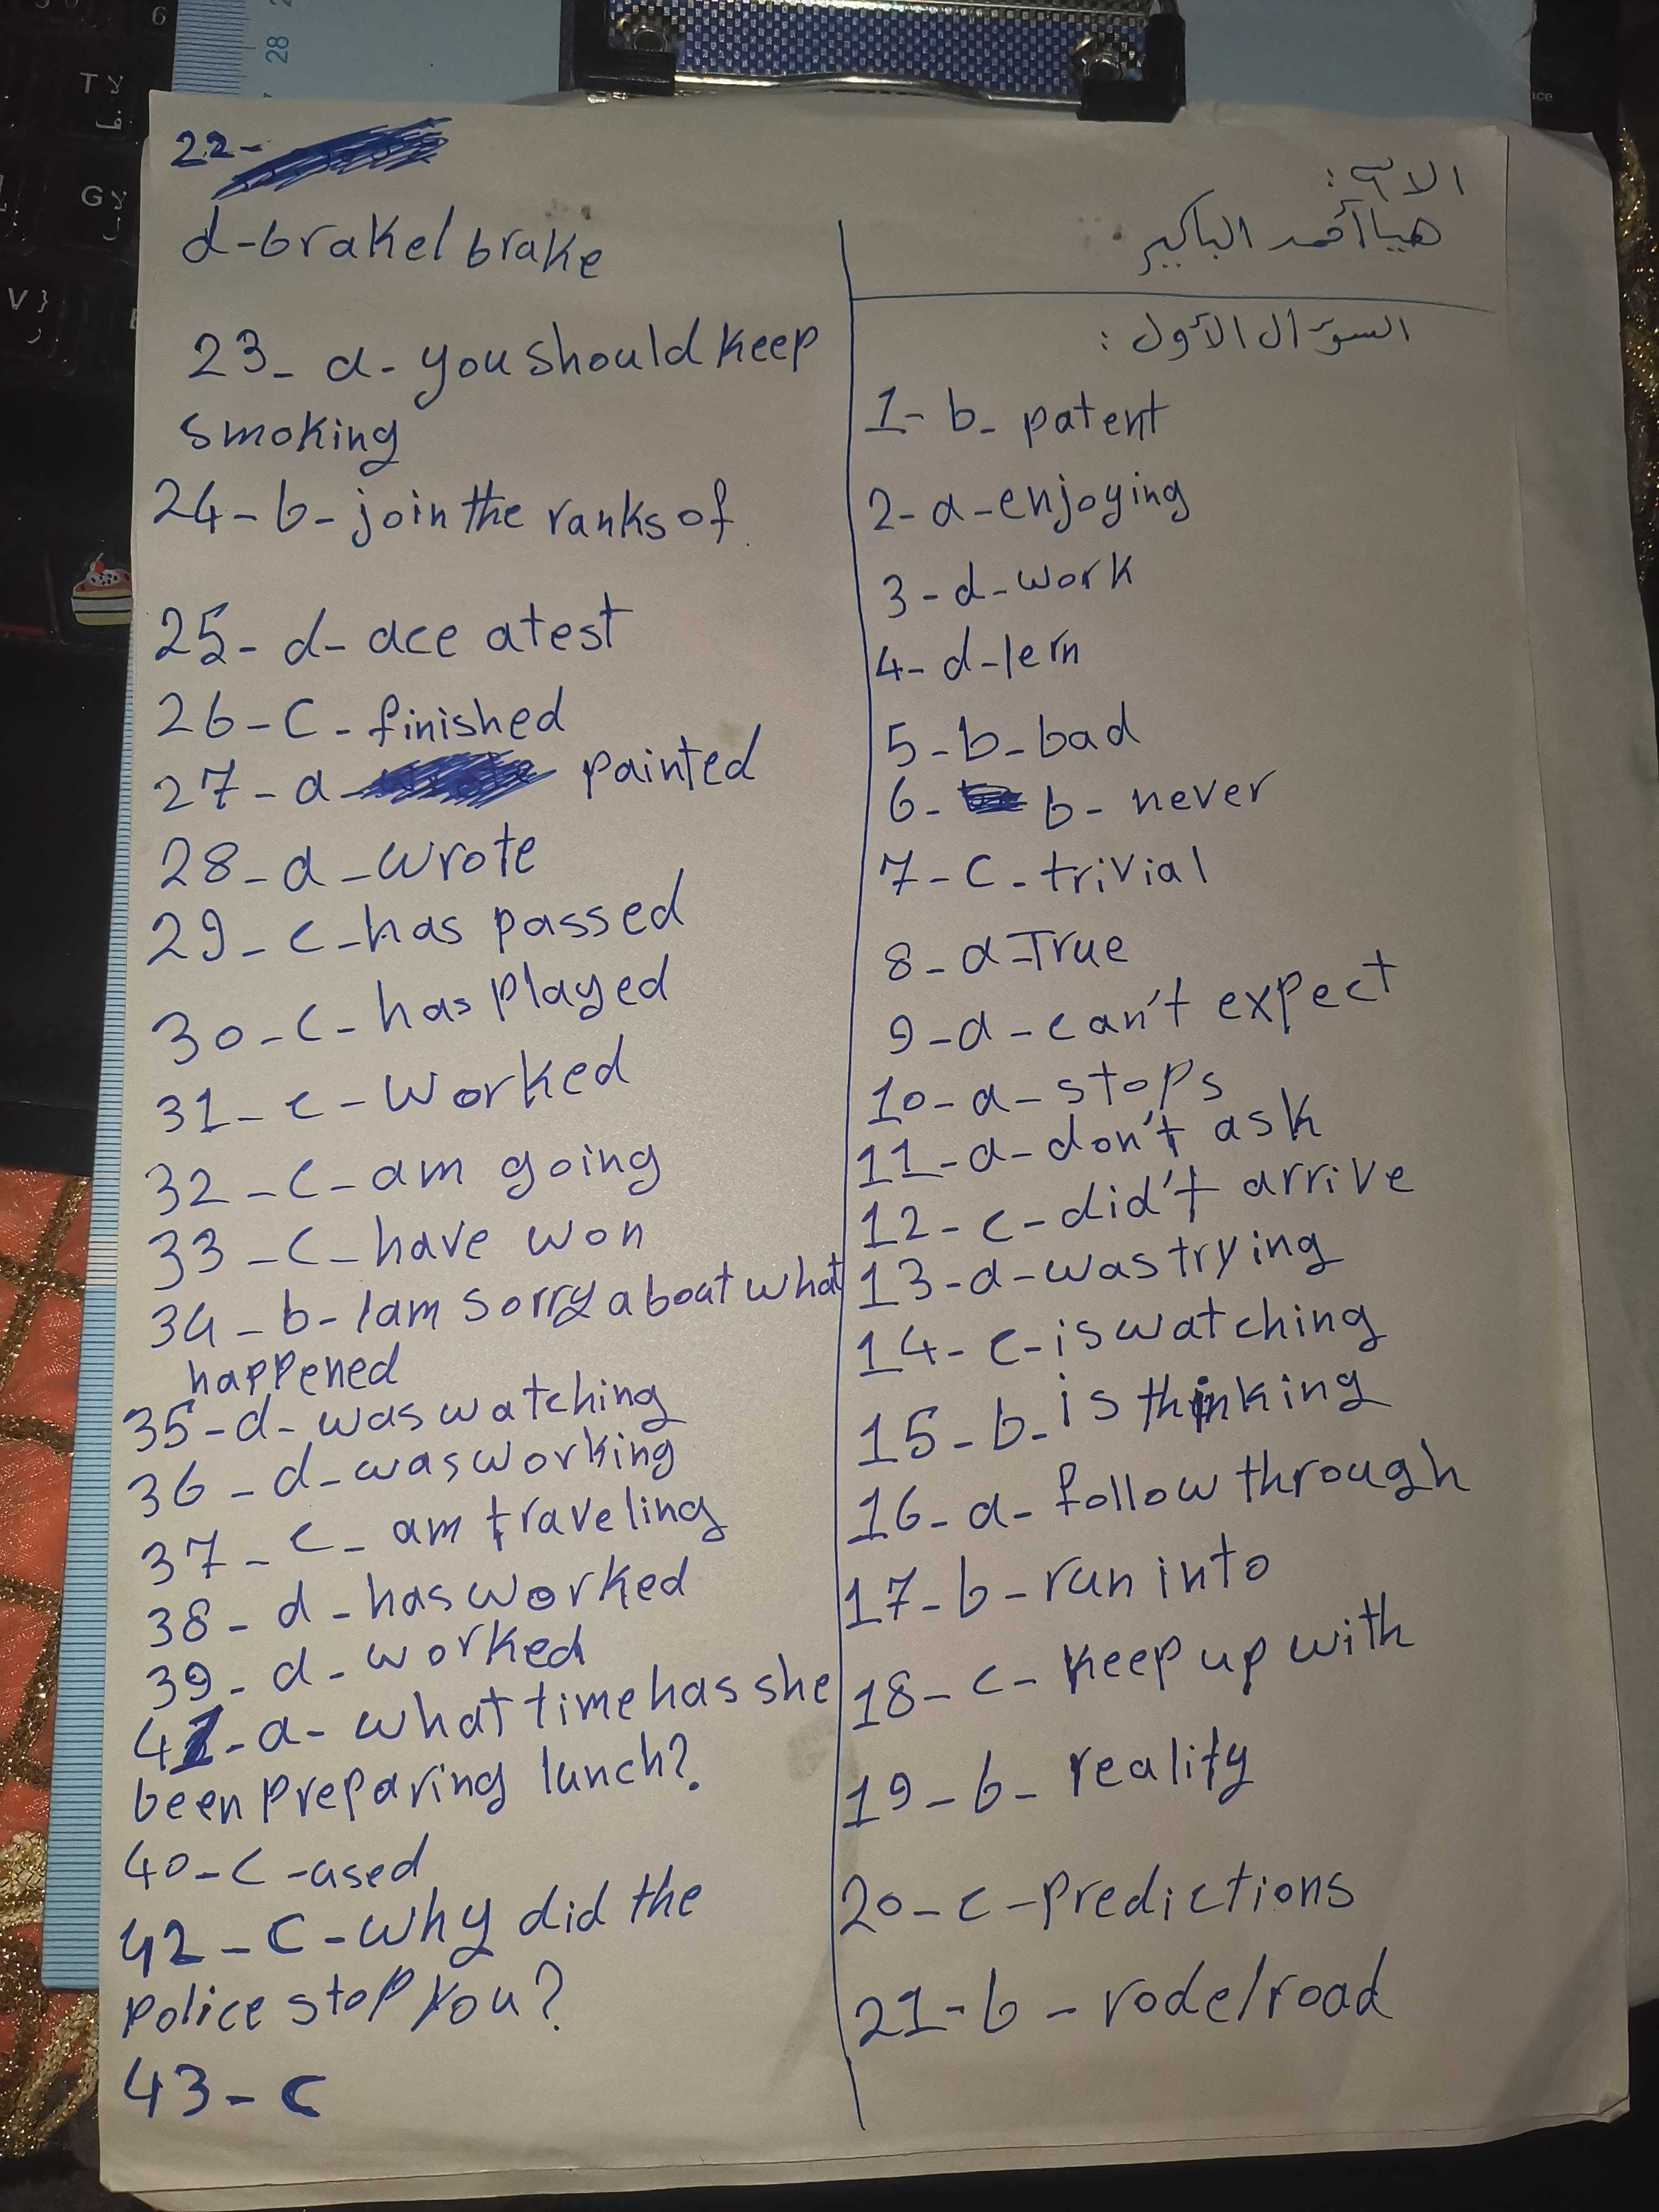 الاسم:
هيا أحمد الباكير
السؤال الأول:
1- b- patent
2- a- enjoying
3- d- work
4- d- lern
5- b- bad
6- b- never
7- C- trivial
8- a- True
9- a- can't expect
10- a- stops
11- a- don't ask
12- c- did't arrive
13- a- was trying
14- c- is watching
15- b- is thinking
16- a- follow through
17- b- run into
18- c- keep up with
19- b- reality
20- c- predictions
21- b- rode/road
22-
d- brakel brake
23- a- you should keep
smoking
24- b- join the ranks of
25- d- ace a test
26- C- finished
27- a- painted
28- a- wrote
29- c- has passed
30- c- has played
31- c- worked
32- c- am going
33- c- have won
34- b- I am sorry about what
happened
35- d- was watching
36- d- was working
37- c- am traveling
38- d- has worked
39- d- worked
41- a- what time has she
been preparing lunch?
40- c- used
42- C- why did the
police stop you?
43- c
28
6
T
G
V }